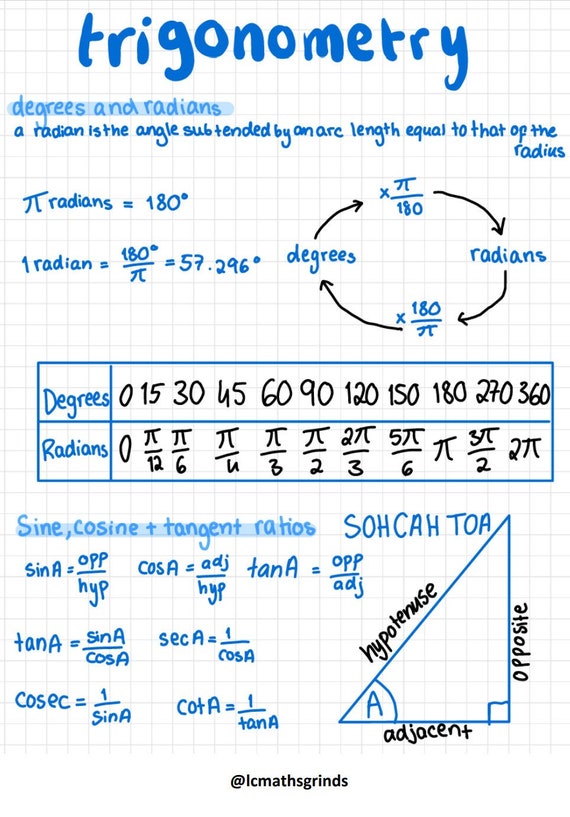 trigonometry
degrees and radians
a radian is the angle subtended by an arc length equal to that of the
radius
π radians = 180°
1 radian = 180°/π = 57.296°
× π/180
degrees
radians
× 180/π
Degrees 0 15 30 45 60 90 120 150 180 270 360
Radians 0 π/12 π/6 π/4 π/3 π/2 2π/3 5π/6 π 3π/2 2π
Sine, cosine + tangent ratios
SOHCAH TOA
sin A = opp/hyp cos A = adj/hyp tan A = opp/adj
tan A = sin A/cos A sec A = 1/cos A
cosec = 1/sin A cot A = 1/tan A
hypotenuse
opposite
A
adjacent
@lcmathsgrinds